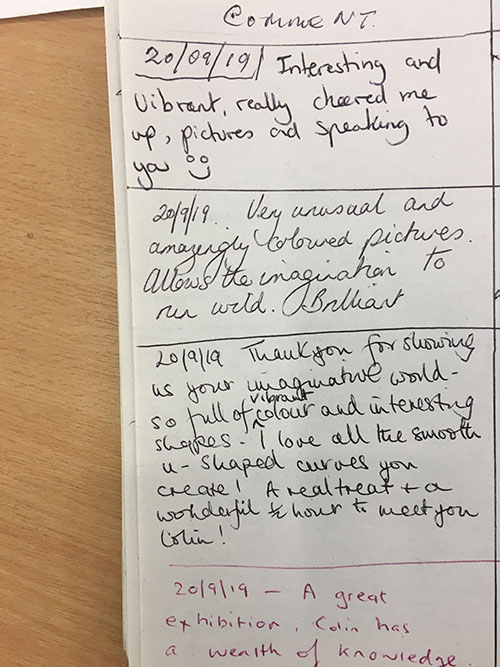 COMMENT.
20/09/19 Interesting and
Vibrant, really cheered me
up, pictures and speaking to
you
20/9/19. Very unusual and
amazingly coloured pictures.
Allows the imagination to
run wild. Brilliant
20/9/19 Thank you for showing
us your imaginative world -
so full of vibrant colour and interesting
shapes. I love all the smooth
u-shaped curves you
create! A real treat + a
wonderful ½ hour to meet you
Colin!
20/9/19 - A great
exhibition, Colin has
a wealth of knowledge